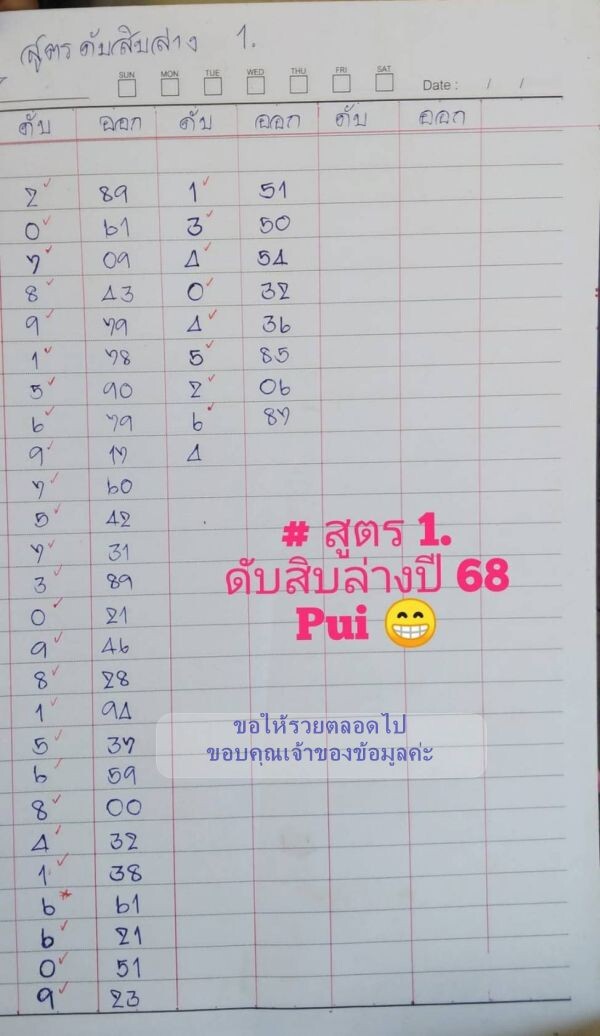 สูตรดับสิบล่าง 1.
SUN MON TUE WED THU FRI SAT Date : / /
ดับ ออก ดับ ออก ดับ ออก
2 89 1 51
0 61 3 50
7 09 4 54
8 43 0 32
9 79 4 36
1 78 5 85
5 90 2 06
6 79 6 87
9 17 4
7 60
5 42
7 31
3 89
0 21
9 46
8 28
1 94
5 37
6 59
8 00
4 32
1 38
6 61
6 21
0 51
9 23
# สูตร 1.
ดับสิบล่างปี 68
Pui 😁
ขอให้รวยตลอดไป
ขอบคุณเจ้าของข้อมูลค่ะ